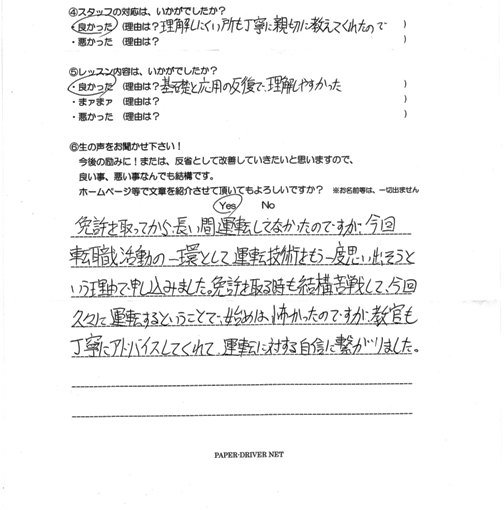 ④スタッフの対応は、いかがでしたか?
・良かった (理由は?理解しにくい所も丁寧に親切に教えてくれたので )
・悪かった (理由は? )
⑤レッスン内容は、いかがでしたか?
・良かった (理由は?基礎と応用の反復で、理解しやすかった )
・まァまァ (理由は? )
・悪かった (理由は? )
⑥生の声をお聞かせ下さい!
今後の励みに!または、反省として改善していきたいと思いますので、
良い事、悪い事なんでも結構です。
ホームページ等で文章を紹介させて頂いてもよろしいですか? ※お名前等は、一切出ません
Yes No
免許を取ってから、長い間運転してなかったのですが、今回
転職活動の一環として、運転技術をもう一度思い出そうと
いう理由で、申し込みました。免許を取る時も結構苦戦して、今回
久々に運転するということで、始めは、怖かったのですが、教官も
丁寧にアドバイスしてくれて、運転に対する自信に繋がりました。
PAPER-DRIVER NET